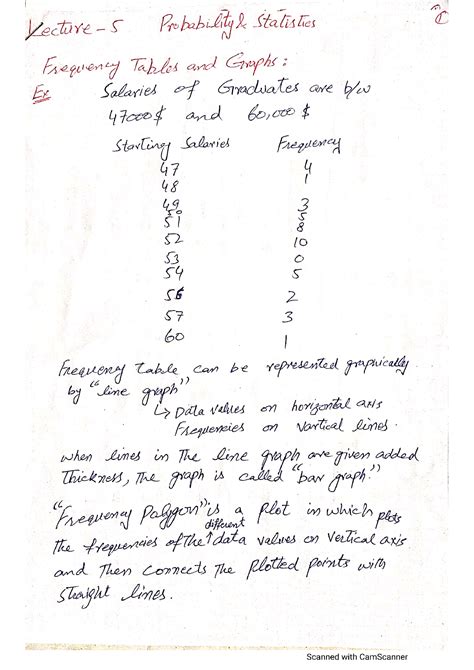 Lecture-5 Probability & Statistics
Frequency Tables and Graphs:
Ex Salaries of Graduates are b/w
47000$ and 60,000$
Starting Salaries Frequency
47 4
48 1
49 3
50 5
51 8
52 10
53 0
54 5
56 2
57 3
60 1
Frequency table can be represented graphically
by "line graph"
↳ Data values on horizontal axis
Frequencies on vartical lines.
when lines in the line graph are given added
thickness, the graph is called "bar graph."
"Frequency Polygon" is a plot in which plots
the frequencies of the different data values on vertical axis
and then connects the plotted points with
straight lines.
Scanned with CamScanner